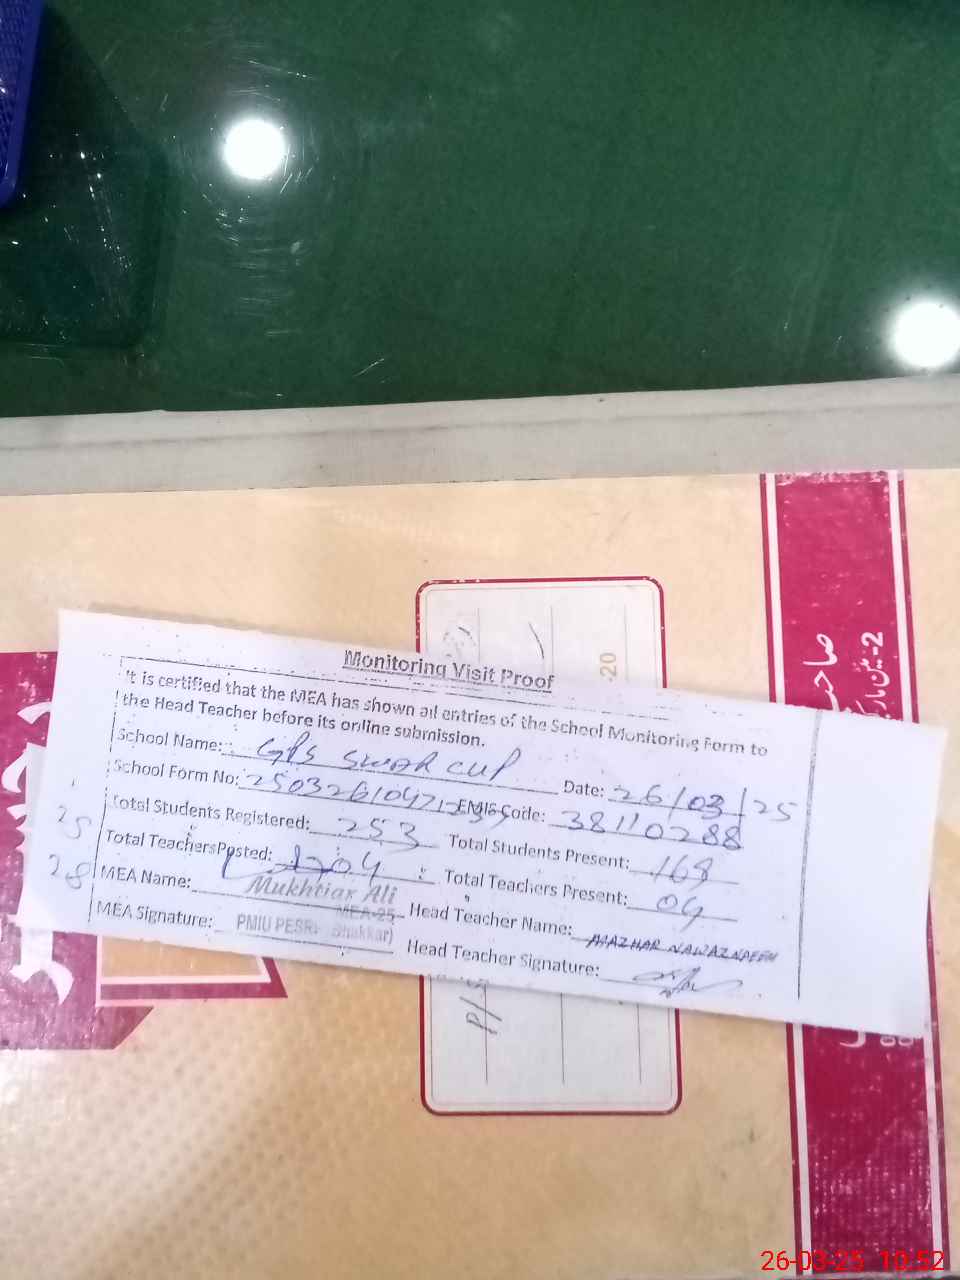 Monitoring Visit Proof
It is certified that the MEA has shown all entries of the School Monitoring Form to
the Head Teacher before its online submission.
School Name: GPS Date: 26/03/25
School Form No: EMIS Code: 38110288
Total Students Registered: 253 Total Students Present: 168
Total Teachers Posted: 04 Total Teachers Present: 04
MEA Name: Mukhtiar Ali Head Teacher Name: MAZHAR NAWAZ
MEA-25
MEA Signature: PMIU PESRP Bhakkar) Head Teacher Signature:
25
28
20
صاحب
2-
P/
26-03-25 10:52